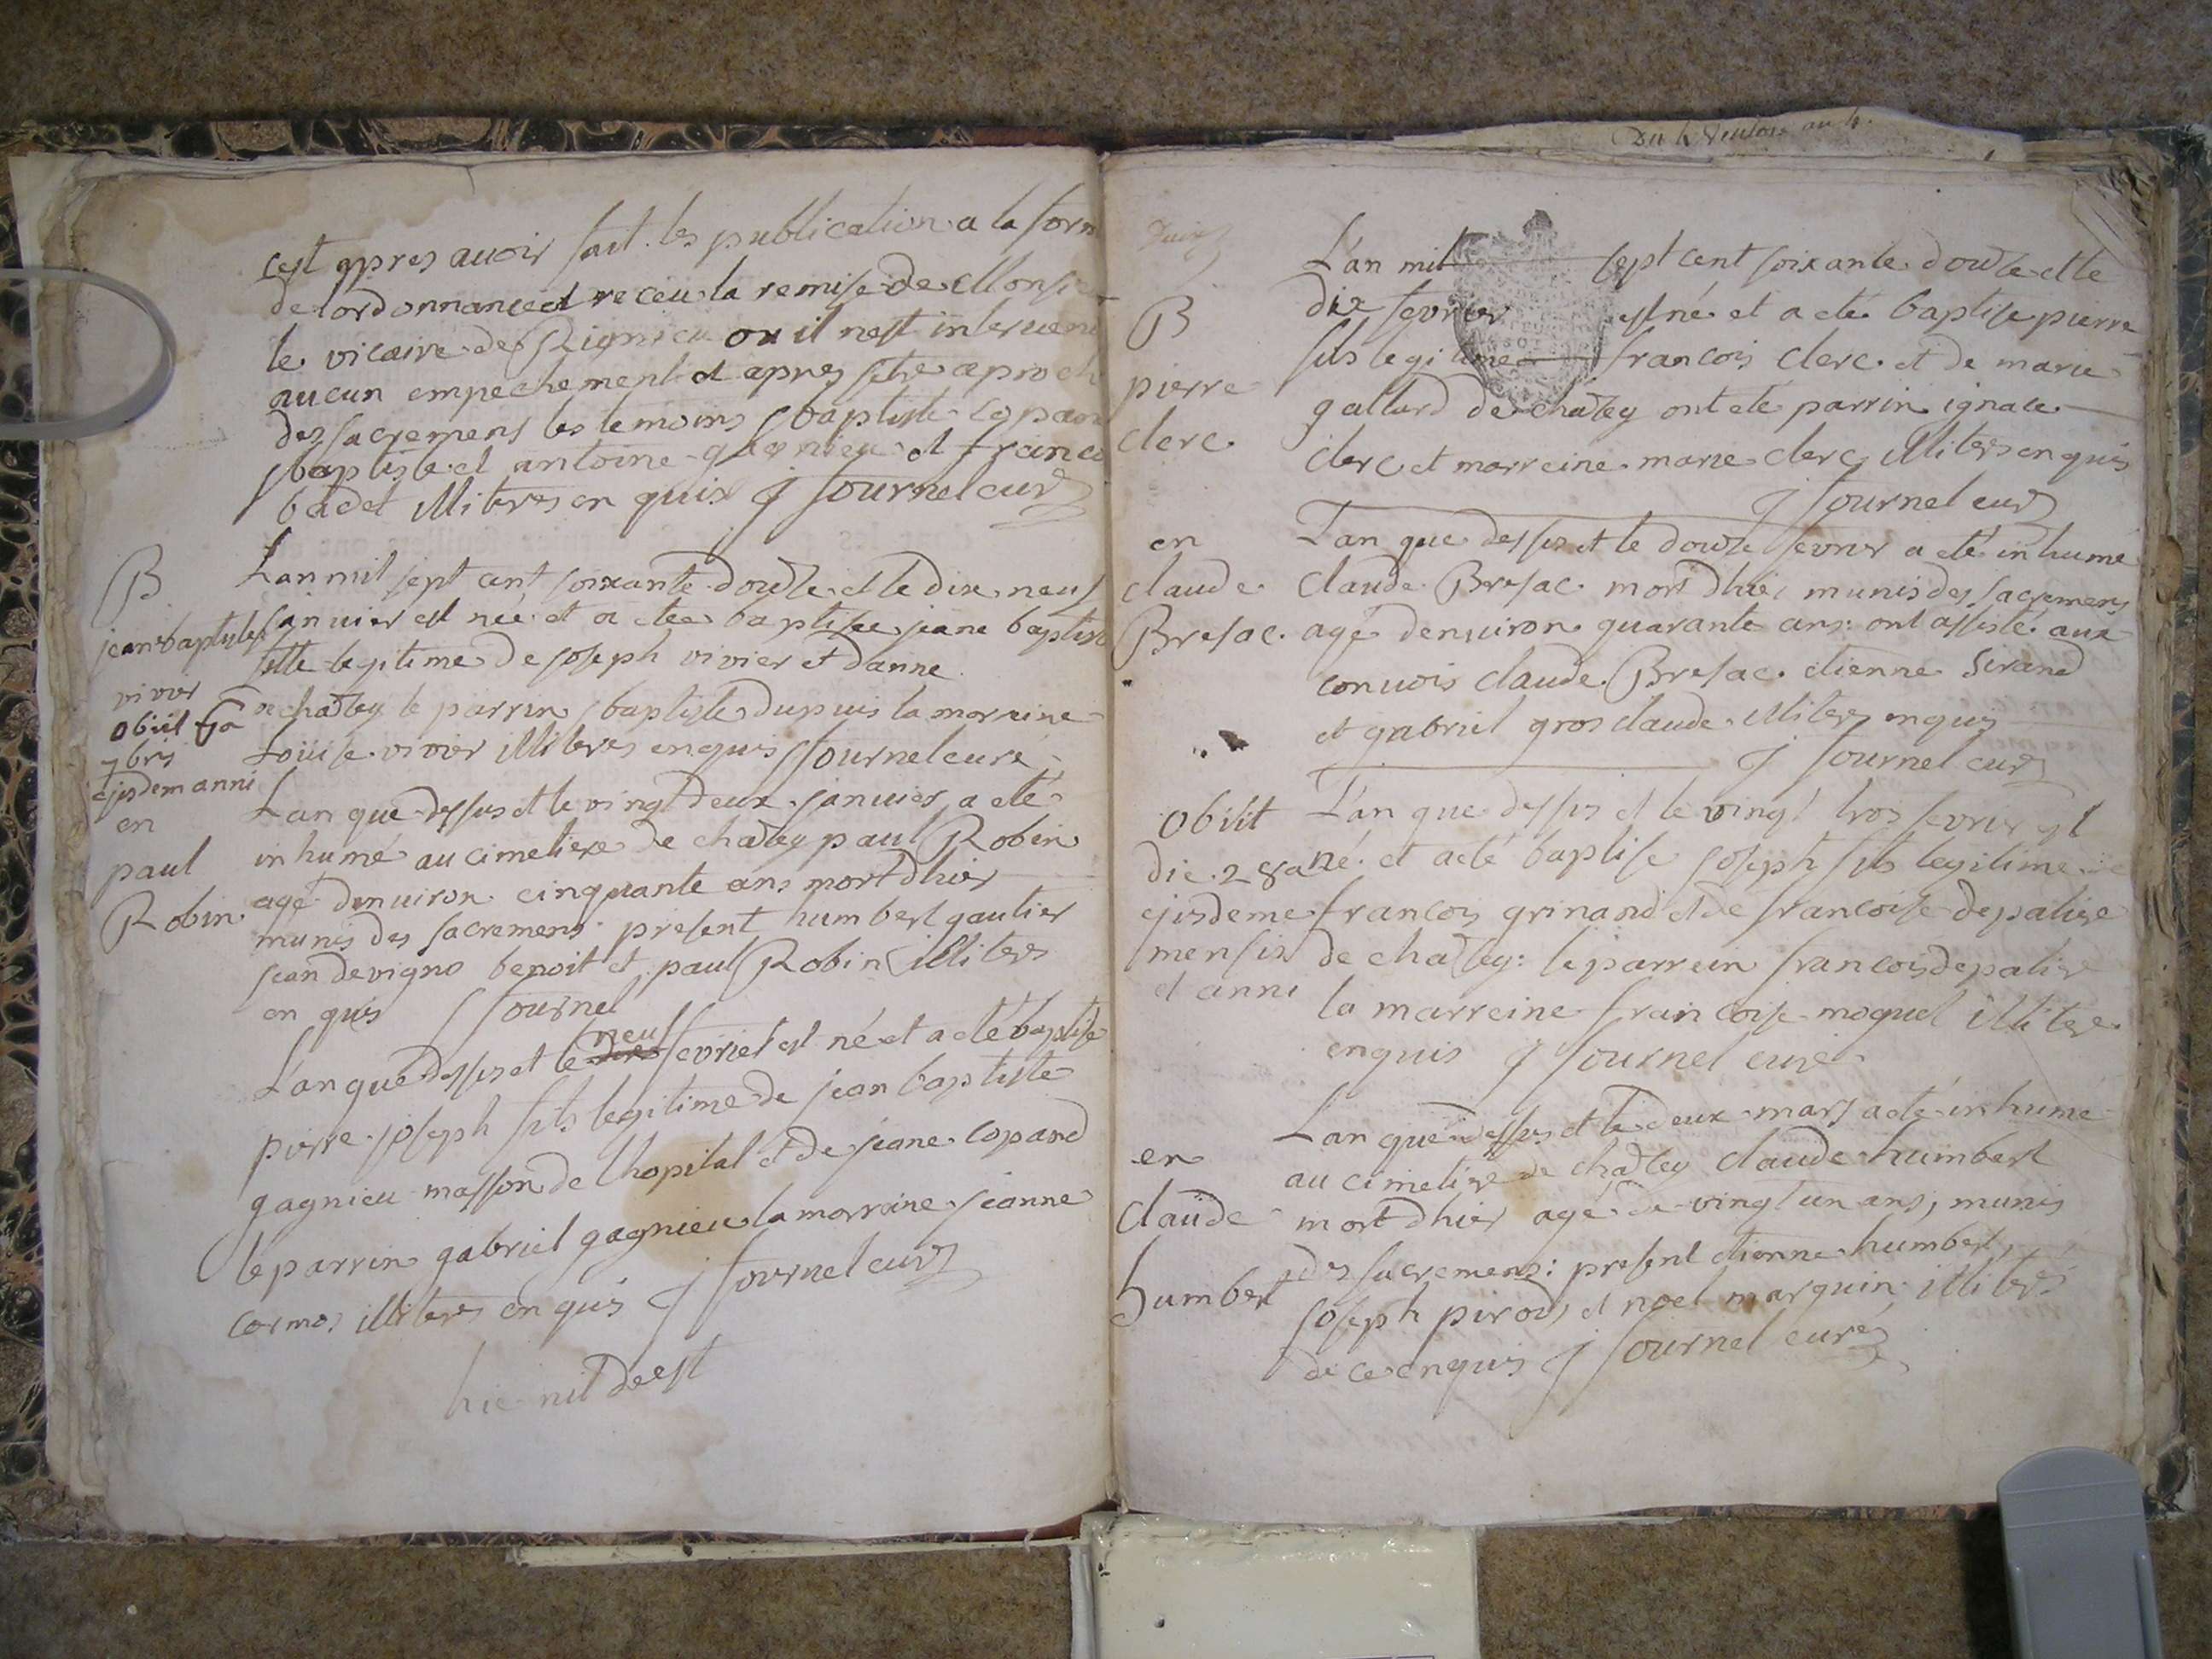 cest apres avoir fait les publication a la form
de lordonnance et receu la remise de Monsie
le vicaire de Rignieu ou il nest intervenu
aucun empechement et apres setre aproch
des sacremens les temoins j baptiste copan
j baptiste et antoine gagnieu et franco
badet illiteres en quis J fournel curé
B
jeane baptiste
vivier
obiit
7bris
ejusdem anni
Lan mil sept cent soixante douze et le dix neuf
janvier est née et a etee baptisee jeane baptiste
fille legitime de joseph vivier et danne
de chatley le parrin j baptiste dupuis la marreine
Loüise vivier illiteres enquis J fournel curé
en
paul
Robin
Lan que dessus et le vingt deux janvier a eté
inhumé au cimetiere de chatley paul Robin
agé denviron cinquante ans mort dhier
munis des sacremens present humbert gautier
jean devigno benoit et paul Robin illiteres
en quis J fournel
L'an que dessus et le neuf fevrier est né et a eté baptisé
pierre joseph fils legitime de jean baptiste
gagnieu masson de lhopital et de jeane copand
le parrin gabriel gagnieu la marreine jeanne
cormos illiteres en quis J fournel curé
hic nil deest
Du 4 Ventose au 4.
B
pierre
clerc
L'an mil sept cent soixante douze et le
dix fevrier est né et a eté baptise pierre
fils legitime francois clerc et de marie
gallard de chatley ont eté parrin ignace
clerc et marreine marie clerc illiteres enquis
J fournel curé
en
claude
Bresac.
L'an que dessus et le douze fevrier a eté inhumé
claude Bresac mort dhier munis des sacremens
agé denviron quarante ans: ont assisté aux
convois claude Bresac. etienne Sirand
et gabriel gros claude illiteres enquis
J fournel curé
obiit
die 28a
ejusdeme
mensis
et anni
L'an que dessus et le vingt trois fevrier est
né et a eté baptise joseph fils legitime de
francois grinand et de francoise depaliere
de chatley: le parrein francois depaliere
la marreine francoise moquet illitere
enquis J fournel curé
en
claude
humbert
Lan que dessus et le deux mars a eté inhumé
au cimetiere de chatley claude humbert
mort dhier agé de vingt un ans, munis
des sacremens: present etienne humbert,
joseph pirod, et noel marquin illiteres
de ce enquis J fournel curé